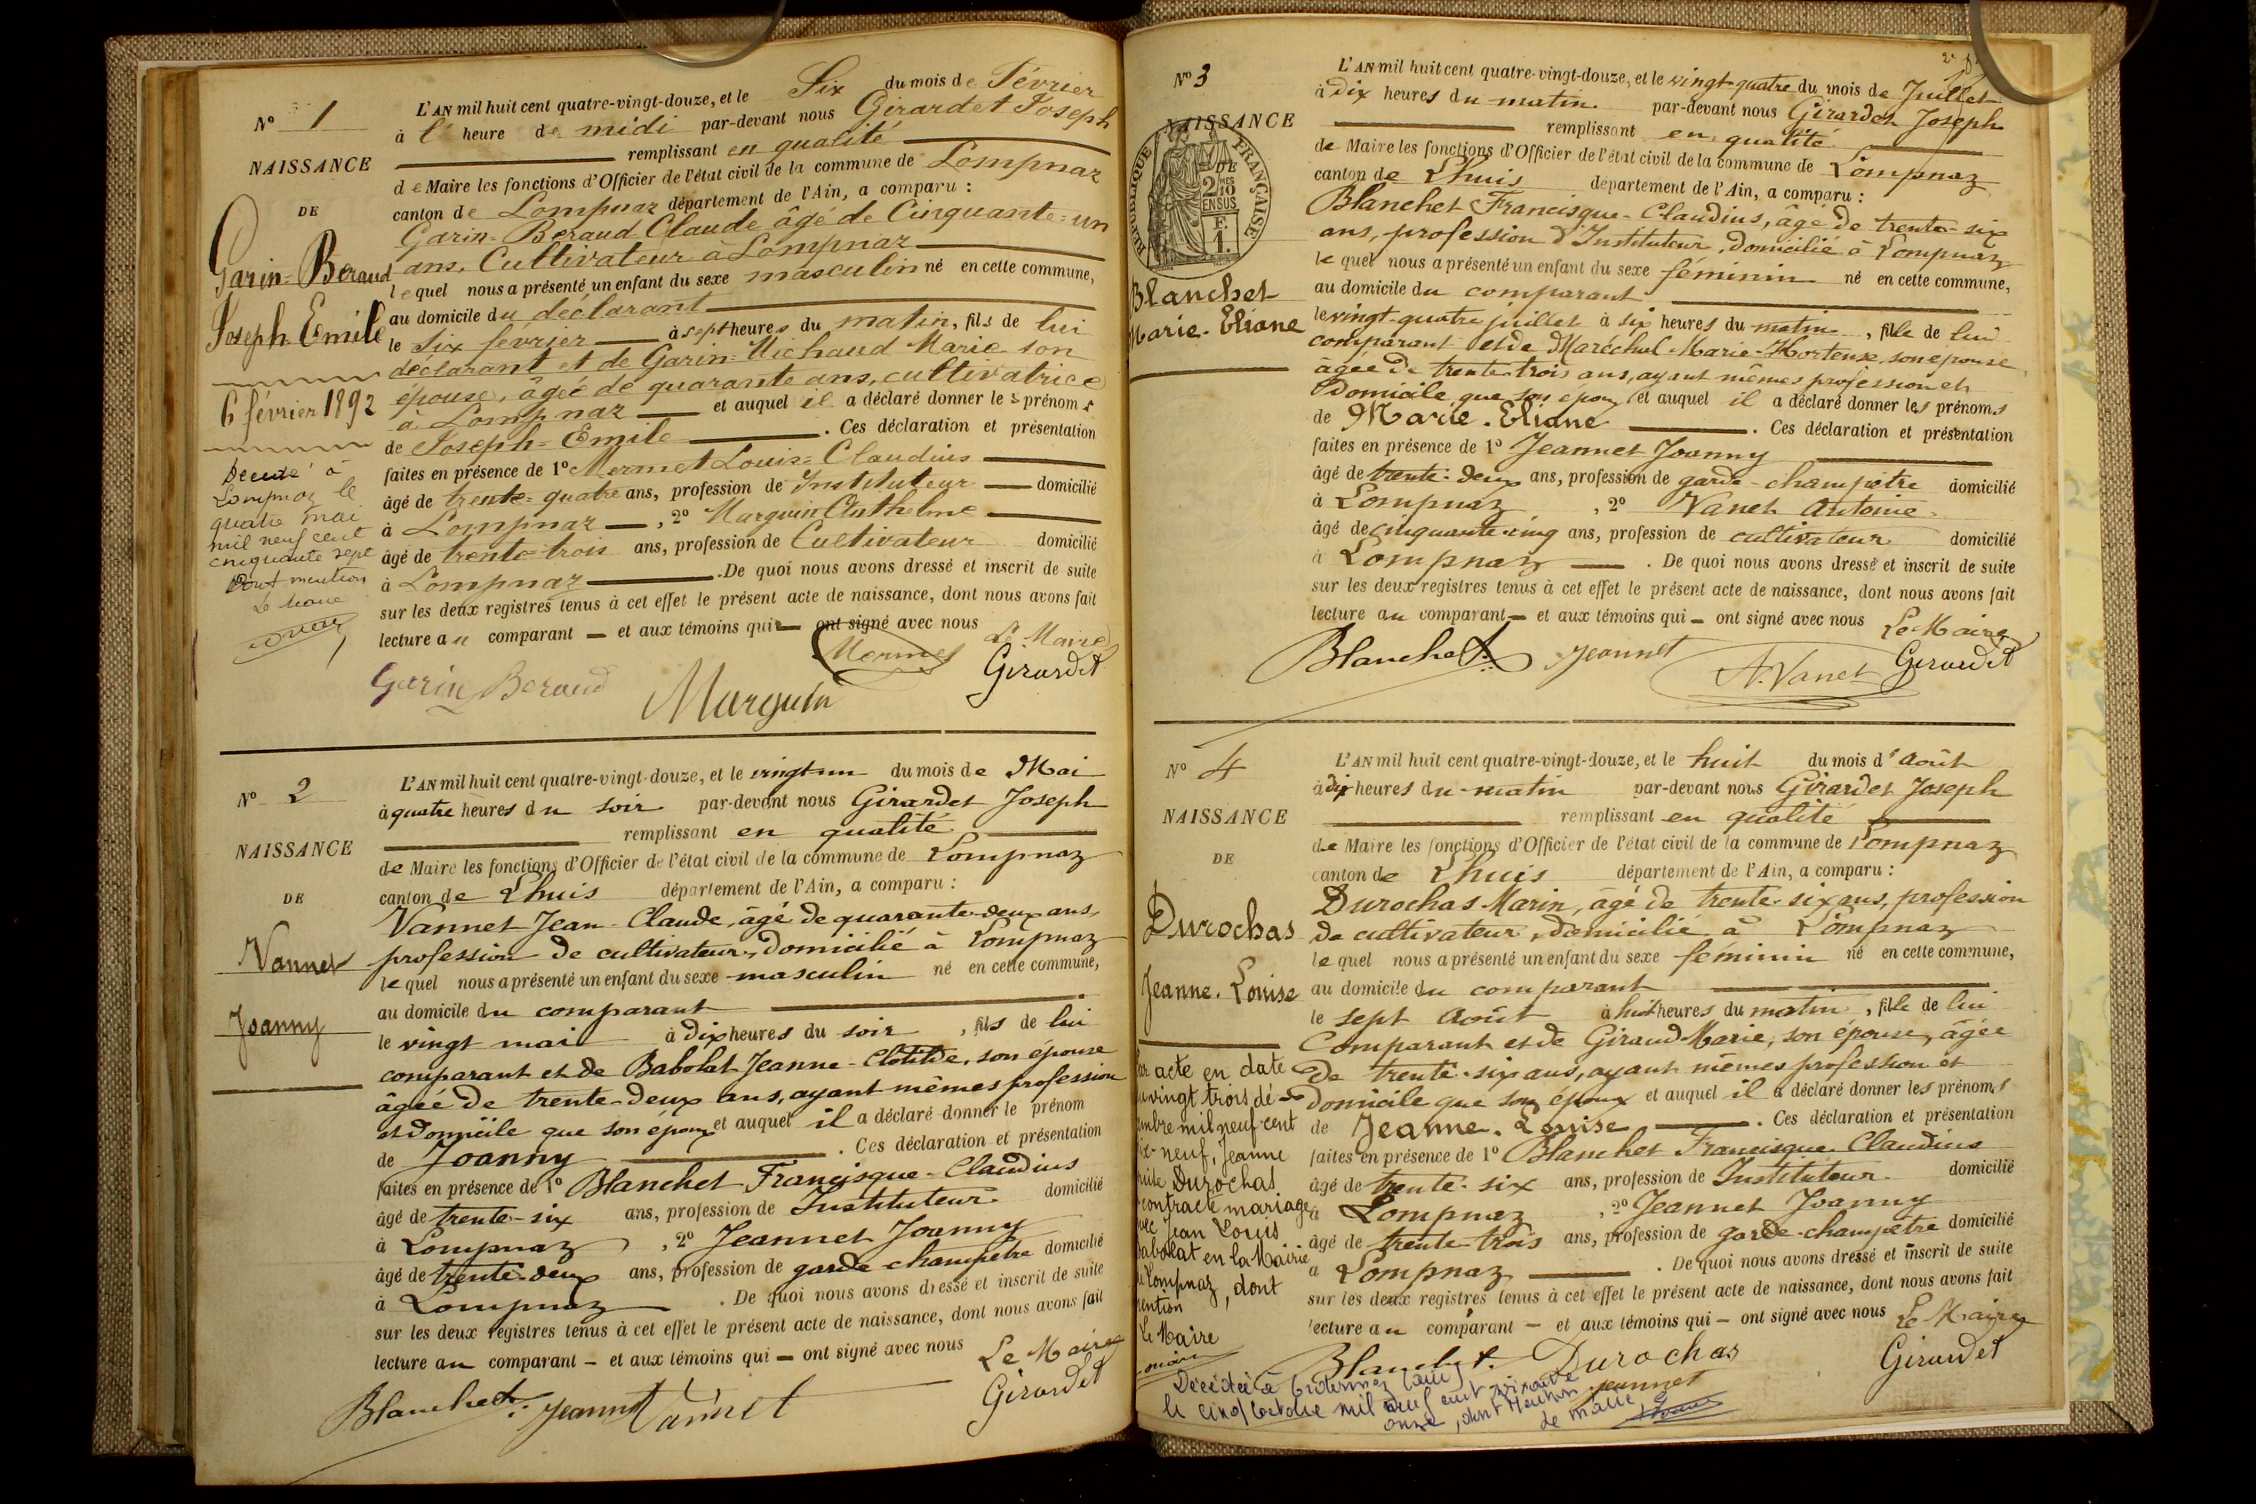 N° 1
NAISSANCE
DE
Garin-Beraud
Joseph Emile
6 février 1892
Décédé à
Lompnaz le
quatre mai
mil neuf cent
cinquante sept
Dont mention
Le Maire
L'AN mil huit cent quatre-vingt-douze, et le Six du mois de Février
à l' heure de midi par-devant nous Girardet Joseph
remplissant en qualité
de Maire les fonctions d'Officier de l'état civil de la commune de Lompnaz
canton de Lompnaz département de l'Ain, a comparu :
Garin-Beraud Claude âgé de Cinquante-un
ans, Cultivateur à Lompnaz
lequel nous a présenté un enfant du sexe masculin né en cette commune,
au domicile du déclarant
le six février à sept heures du matin, fils de lui
déclarant et de Garin-Michaud Marie son
épouse, âgée de quarante ans, cultivatrice
à Lompnaz et auquel il a déclaré donner les prénoms
de Joseph-Emile. Ces déclaration et présentation
faites en présence de 1° Mermet Louis-Claudius
âgé de trente-quatre ans, profession de Instituteur domicilié
à Lompnaz, 2° Marguin Anthelme
âgé de trente-trois ans, profession de Cultivateur domicilié
à Lompnaz. De quoi nous avons dressé et inscrit de suite
sur les deux registres tenus à cet effet le présent acte de naissance, dont nous avons fait
lecture au comparant — et aux témoins qui — ont signé avec nous
Le Maire
Garin Beraud Marguin Mermet Girardet
N° 2
NAISSANCE
DE
Vannet
Joanny
L'AN mil huit cent quatre-vingt-douze, et le vingt-un du mois de Mai
à quatre heures du soir par-devant nous Girardet Joseph
remplissant en qualité
de Maire les fonctions d'Officier de l'état civil de la commune de Lompnaz
canton de Lhuis département de l'Ain, a comparu :
Vannet Jean-Claude, âgé de quarante-deux ans,
profession de cultivateur, domicilié à Lompnaz
lequel nous a présenté un enfant du sexe masculin né en cette commune,
au domicile du comparant
le vingt mai à dix heures du soir, fils de lui
comparant et de Babolat Jeanne-Clotilde, son épouse
âgée de trente-deux ans, ayant mêmes profession
et domicile que son époux et auquel il a déclaré donner le prénom
de Joanny. Ces déclaration et présentation
faites en présence de 1° Blanchet Francisque-Claudius
âgé de trente-six ans, profession de Instituteur domicilié
à Lompnaz, 2° Jeannet Joanny
âgé de trente-deux ans, profession de garde champêtre domicilié
à Lompnaz. De quoi nous avons dressé et inscrit de suite
sur les deux registres tenus à cet effet le présent acte de naissance, dont nous avons fait
lecture au comparant — et aux témoins qui — ont signé avec nous
Le Maire
Blanchet Jeannet Vannet Girardet
N° 3
NAISSANCE
DE
RÉPUBLIQUE FRANÇAISE
2 10 MES
EN SUS
F.
1.
Blanchet
Marie-Eliane
L'AN mil huit cent quatre-vingt-douze, et le vingt-quatre du mois de Juillet
à dix heures du matin par-devant nous Girardet Joseph
remplissant en qualité
de Maire les fonctions d'Officier de l'état civil de la commune de Lompnaz
canton de Lhuis département de l'Ain, a comparu :
Blanchet Francisque-Claudius, âgé de trente-six
ans, profession d'Instituteur, domicilié à Lompnaz
lequel nous a présenté un enfant du sexe féminin né en cette commune,
au domicile du comparant
le vingt-quatre juillet à six heures du matin, fille de lui
comparant et de Maréchal Marie-Hortense, son épouse,
âgée de trente-trois ans, ayant mêmes profession et
Domicile que son époux et auquel il a déclaré donner les prénoms
de Marie-Eliane. Ces déclaration et présentation
faites en présence de 1° Jeannet Joanny
âgé de trente-deux ans, profession de garde-champêtre domicilié
à Lompnaz, 2° Vanet Antoine
âgé de cinquante-cinq ans, profession de cultivateur domicilié
à Lompnaz. De quoi nous avons dressé et inscrit de suite
sur les deux registres tenus à cet effet le présent acte de naissance, dont nous avons fait
lecture au comparant — et aux témoins qui — ont signé avec nous
Le Maire
Blanchet Jeannet A. Vanet Girardet
N° 4
NAISSANCE
DE
Durochas
Jeanne-Louise
acte en date
vingt trois dé-
embre mil neuf cent
ix-neuf, Jeanne
uise Durochas
contracté mariage
vec Jean Louis
Babolat en la Mairie
de Lompnaz, dont
mention
Le Maire
L'AN mil huit cent quatre-vingt-douze, et le huit du mois d'Août
à dix heures du matin par-devant nous Girardet Joseph
remplissant en qualité
de Maire les fonctions d'Officier de l'état civil de la commune de Lompnaz
canton de Lhuis département de l'Ain, a comparu :
Durochas Marin, âgé de trente-six ans, profession
de cultivateur, domicilié à Lompnaz
lequel nous a présenté un enfant du sexe féminin né en cette commune,
au domicile du comparant
le sept Août à huit heures du matin, fille de lui
Comparant et de Giraud Marie, son épouse, âgée
de trente-six ans, ayant mêmes profession et
domicile que son époux et auquel il a déclaré donner les prénoms
de Jeanne-Louise. Ces déclaration et présentation
faites en présence de 1° Blanchet Francisque Claudius
âgé de trente-six ans, profession de Instituteur domicilié
à Lompnaz, 2° Jeannet Joanny
âgé de trente-trois ans, profession de garde-champêtre domicilié
à Lompnaz. De quoi nous avons dressé et inscrit de suite
sur les deux registres tenus à cet effet le présent acte de naissance, dont nous avons fait
lecture au comparant — et aux témoins qui — ont signé avec nous
Le Maire
Blanchet Durochas Girardet
Jeannet
Décédée à (Ain)
le cinq octobre mil neuf cent soixante
onze, dont mention